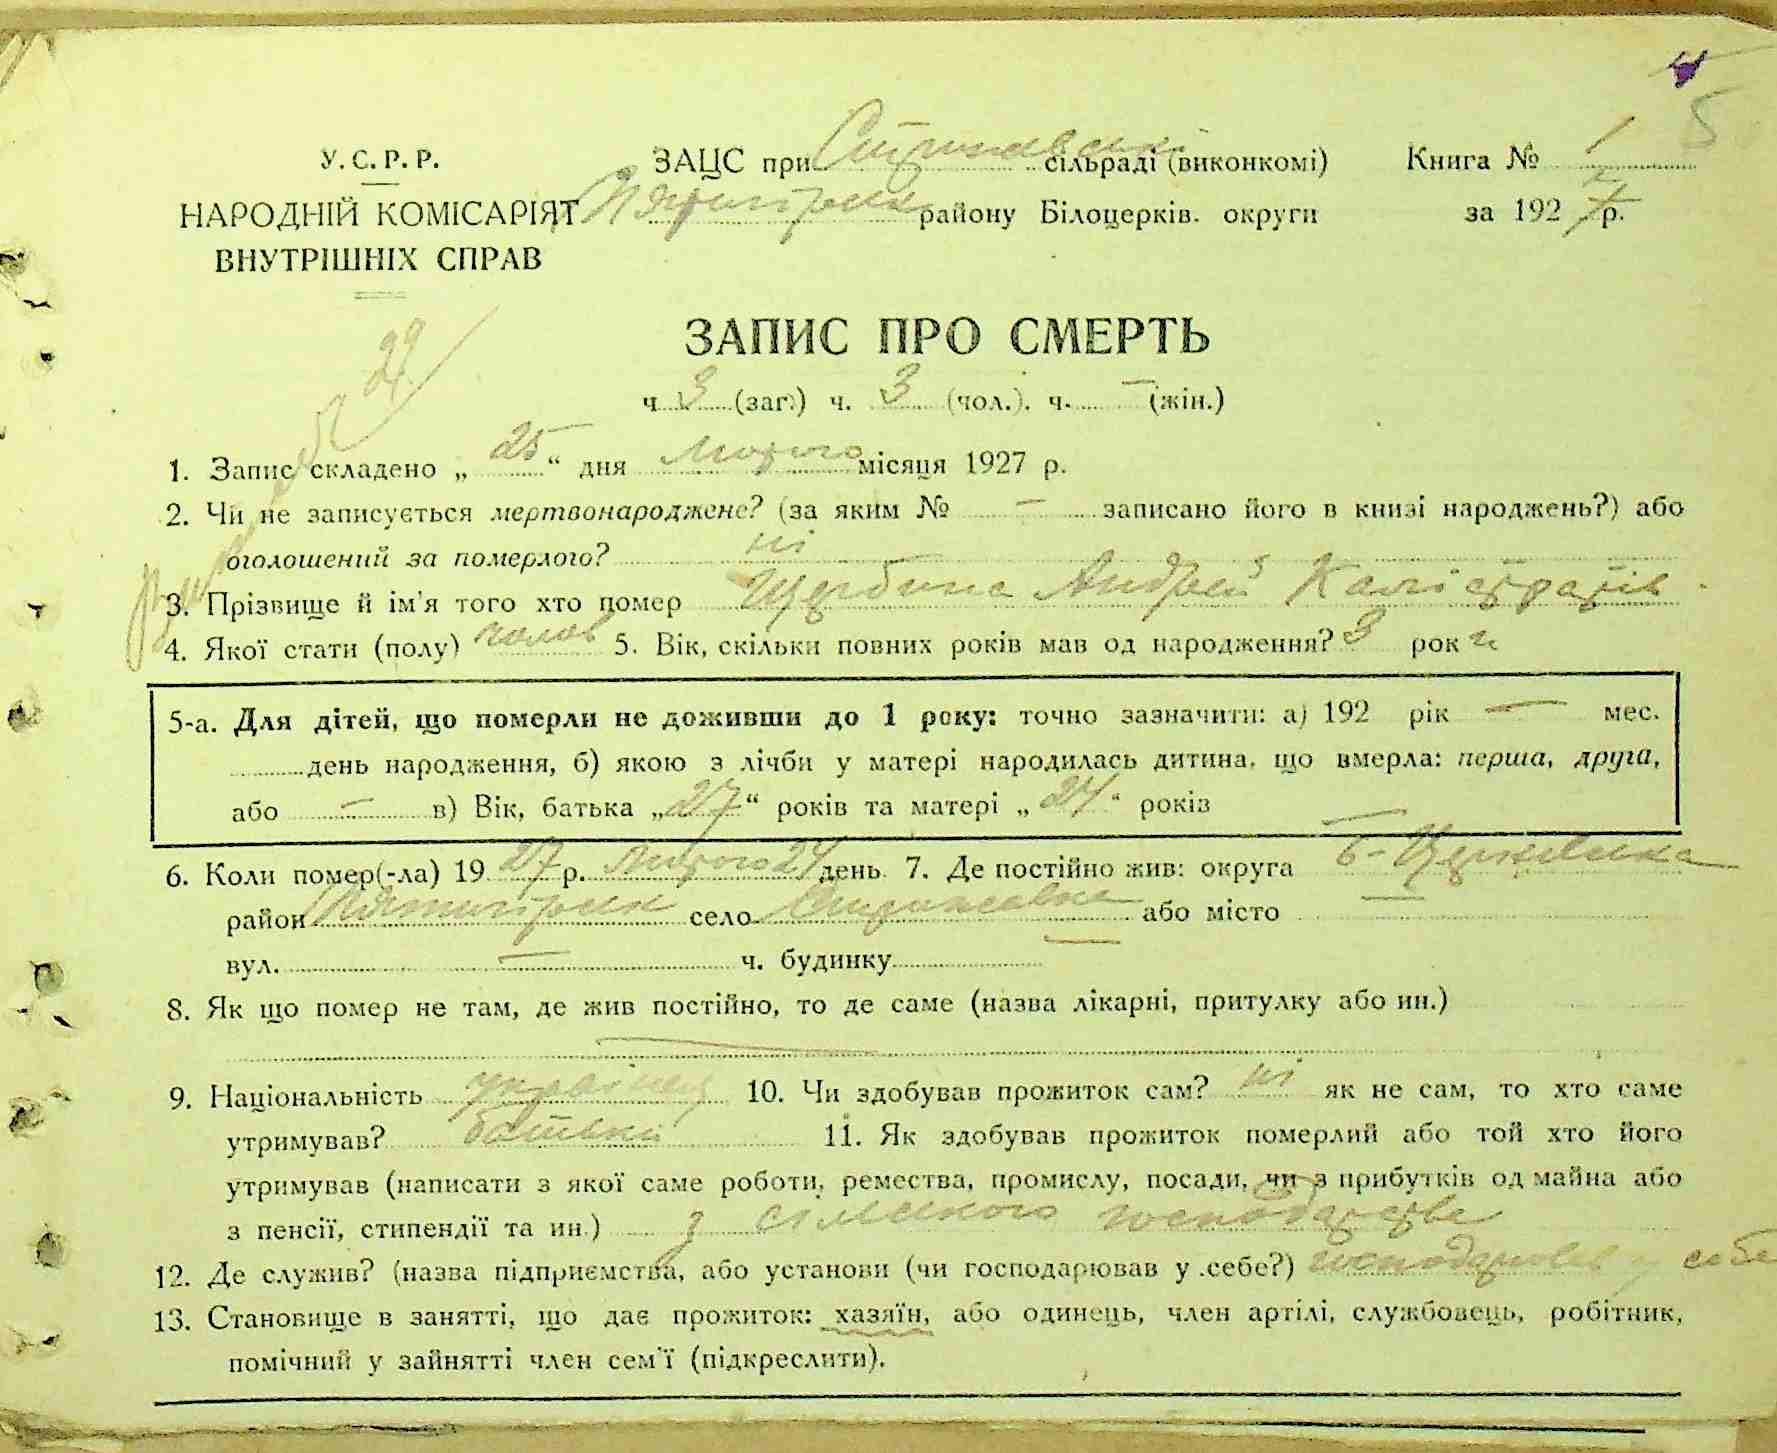 5
У.С.Р.Р.
НАРОДНІЙ КОМІСАРІЯТ
ВНУТРІШНІХ СПРАВ
ЗАЦС при сільраді (виконкомі)
району Білоцерків. округи
Книга № 1
за 1927 р.
ЗАПИС ПРО СМЕРТЬ
ч 3 (заг.) ч. 3 (чол.). ч. — (жін.)
1. Запис складено „ 25 “ дня Лютого місяця 1927 р.
2. Чи не записується мертвонароджене? (за яким № — записано його в книзі народжень?) або
оголошений за померлого? ні
3. Прізвище й ім'я того хто помер Щербина Андрей Калістратів
4. Якої стати (полу) чолов 5. Вік, скільки повних років мав од народження? 3 роки
5-а. Для дітей, що померли не доживши до 1 року: точно зазначити: а) 192 рік — мес.
день народження, б) якою з лічби у матері народилась дитина, що вмерла: перша, друга,
або — в) Вік, батька „27“ років та матері „24“ років
6. Коли помер(-ла) 19 27 р. Лютого 24 день 7. Де постійно жив: округа Б-Церківська
район Пятигірськ село або місто —
вул. — ч. будинку —
8. Як що помер не там, де жив постійно, то де саме (назва лікарні, притулку або ин.)
—
9. Національність українец 10. Чи здобував прожиток сам? ні як не сам, то хто саме
утримував? батьки 11. Як здобував прожиток померлий або той хто його
утримував (написати з якої саме роботи, ремества, промислу, посади, чи з прибутків од майна або
з пенсії, стипендії та ин.) з сілського господарства
12. Де служив? (назва підприємства, або установи (чи господарював у себе?) господарював у себе
13. Становище в занятті, що дає прожиток: хазяїн, або одинець, член артілі, службовець, робітник,
помічний у зайнятті член сем'ї (підкреслити).